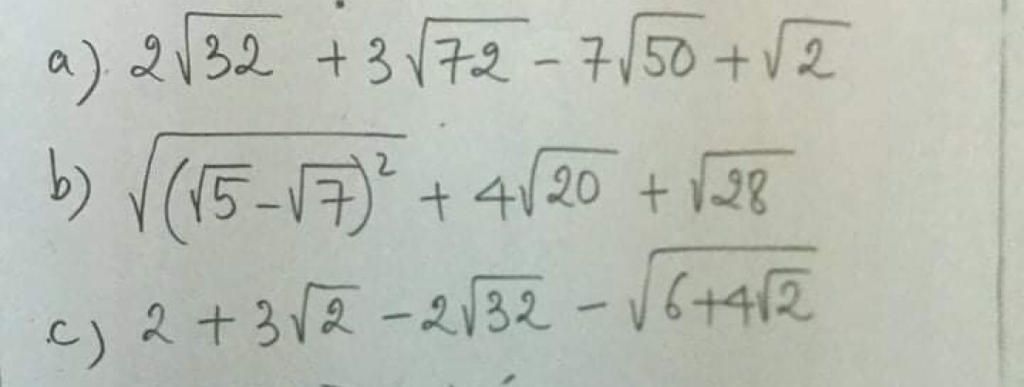 a) 2√32 + 3√72 - 7√50 + √2
b) √((√5-√7)²) + 4√20 + √28
c) 2 + 3√2 - 2√32 - √(6+4√2)